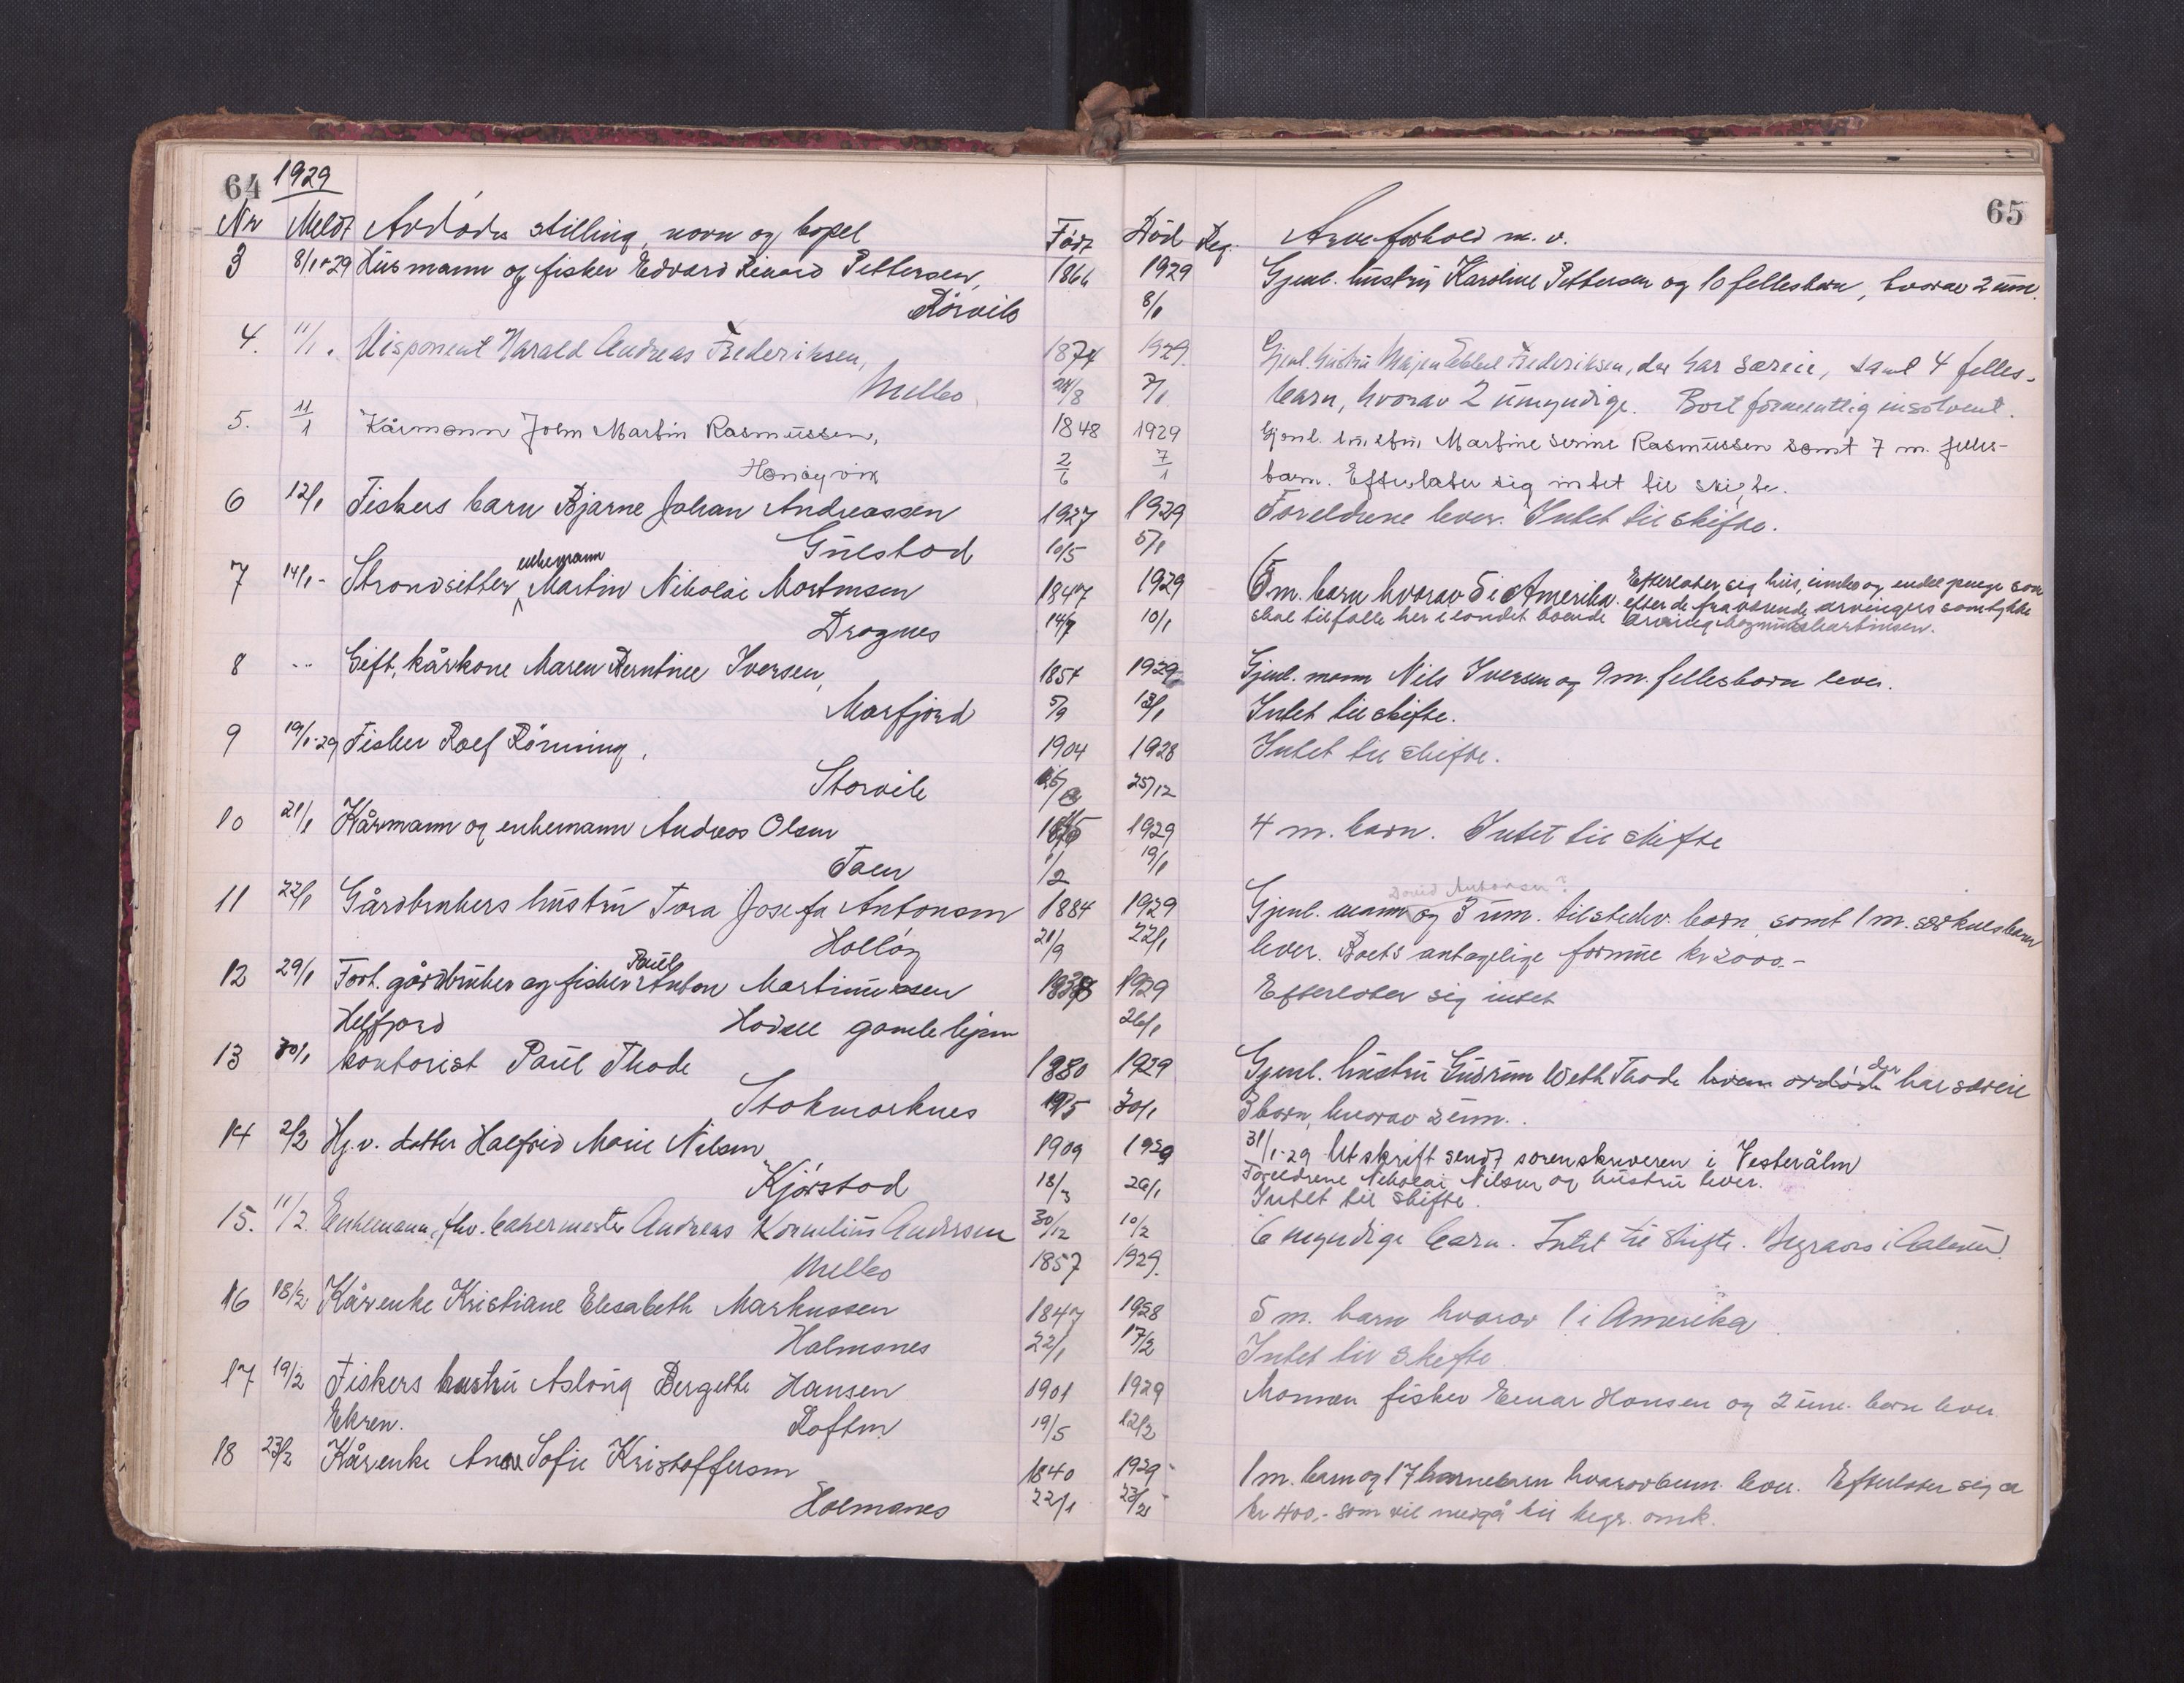 64 1929
65
Nr Meldt Avdødes stilling, navn og bopel Født Død Reg. Arveforhold m. v.
3 8/1-29 Husmann og fisker Edvard Rikard Pettersen, 1866 1929 Gjenl. hustru Karoline Pettersen og 10 fellesbarn, hvorav 2 um.
Rørvik 8/1
4. 11/1 . Disponent Harald Andreas Frederiksen, 1874 1929. Gjenl. hustru Frederiksen, der har særeie, samt 4 felles-
Melbo 24/8 7/1 barn, hvorav 2 umyndige. Boet formentlig insolvent.
5. 11/1 Kårmann John Martin Rasmussen, 1848 1929 Gjenl. hustru Martine Serine Rasmussen samt 7 m. felles-
Hanøyvik 2/6 7/1 barn. Efterlater sig intet til skifte.
6 12/1 Fiskers barn Bjarne Johan Andreassen 1927 1929 Foreldrene lever. Intet til skifte.
Gulstad 10/5 5/1
7 14/1 - Strandsitter, enkemann Martin Nikolai Mortensen 1847 1929 6 m. barn hvorav 5 i Amerika. Efterlater sig hus, innbo og endel penge som
efter de fraværende arvingers samtykke
Dragnes 14/7 10/1 skal tilfalle her i landet boende arving Martinsen.
8 -- Gift, kårkone Maren Berntine Iversen, 1857 1929 Gjenl. mann Nils Iversen og 9 m. fellesbarn lever.
Marfjord 5/9 13/1 Intet til skifte.
9 19/1-29 Fisker Rolf Rönning, 1904 1928 Intet til skifte.
Storvik 25/12
10 21/1 Kårmann og enkemann Andreas Olsen 1929 4 m. barn. Intet til skifte
Taen 1/2 19/1
David Antonsen?
11 22/1 Gårdbrukers hustru Tora Josefa Antonsen 1884 1929 Gjenl. mann og 3 um. tilstedev. barn samt 1 m. særkulsbarn
Holløy 21/9 22/1 lever. Boets antagelige formue kr 2000.-
12 29/1 Forh. gårdbruker og fisker Paul Anton Martinussen 1929 Efterlater sig intet
Helfjord Hadsel gamlehjem 26/1
13 30/1 kontorist Paul Thode 1880 1929 Gjenl. hustru Gudrun Weth Thode hvem avdøde der har særeie
Stokmarknes 19/5 30/1 3 barn, hvorav 2 um.
14 2/2 Hj. v. datter Halfrid Marie Nilsen 1909 1929 31/1-29 Utskrift sendt sorenskriveren i Vesterålen
Kjørstad 18/3 26/1 Foreldrene Nikolai Nilsen og hustru lever.
Intet til skifte.
15. 11/2. Enkemann, fhv. bakermester Andreas Kornelius Andersen 30/12 10/2 6 myndige barn. Intet til skifte. Begraves i Ålesund.
Melbo 1857 1929.
16 18/2. Kårenke Kristiane Elesabeth Markussen 1847 1928 5 m. barn hvorav 1 i Amerika.
Holmsnes 22/1 17/2 Intet til skifte.
17 19/2 Fiskers hustru Aslaug Bergette Hansen 1901 1929 Mannen fisker Einar Hansen og 2 um. barn lever
Ekren. Roften 19/5 12/2
18 23/2 Kårenke Ane Sofie Kristoffersen 1840 1929 1 m. barn og 17 barnebarn hvorav 6 um. lever. Efterlater sig ca
Holmsnes 22/1 23/2 kr 400,- som vil medgå til begr. omk.